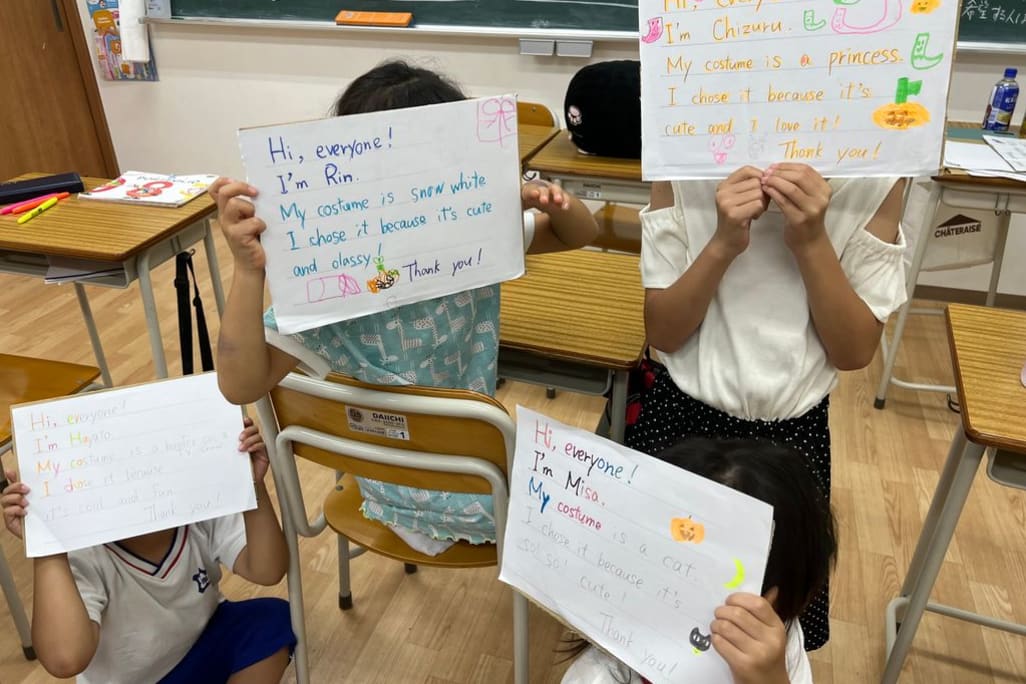 Hi, everyone!
I'm Rin.
My costume is snow white
I chose it because it's cute
and classy!
Thank you!
Hi, every
I'm Chizuru.
My costume is a princess.
I chose it because it's
cute and I love it!
Thank you!
Hi, everyone!
I'm Hayato.
My costume is a
I chose it because
it's cool and fun.
Thank you!
Hi, everyone!
I'm Misa.
My costume is a cat.
I chose it because it's
so! so! cute!
Thank you!
DAIICHI
CHÂTERAISÉ